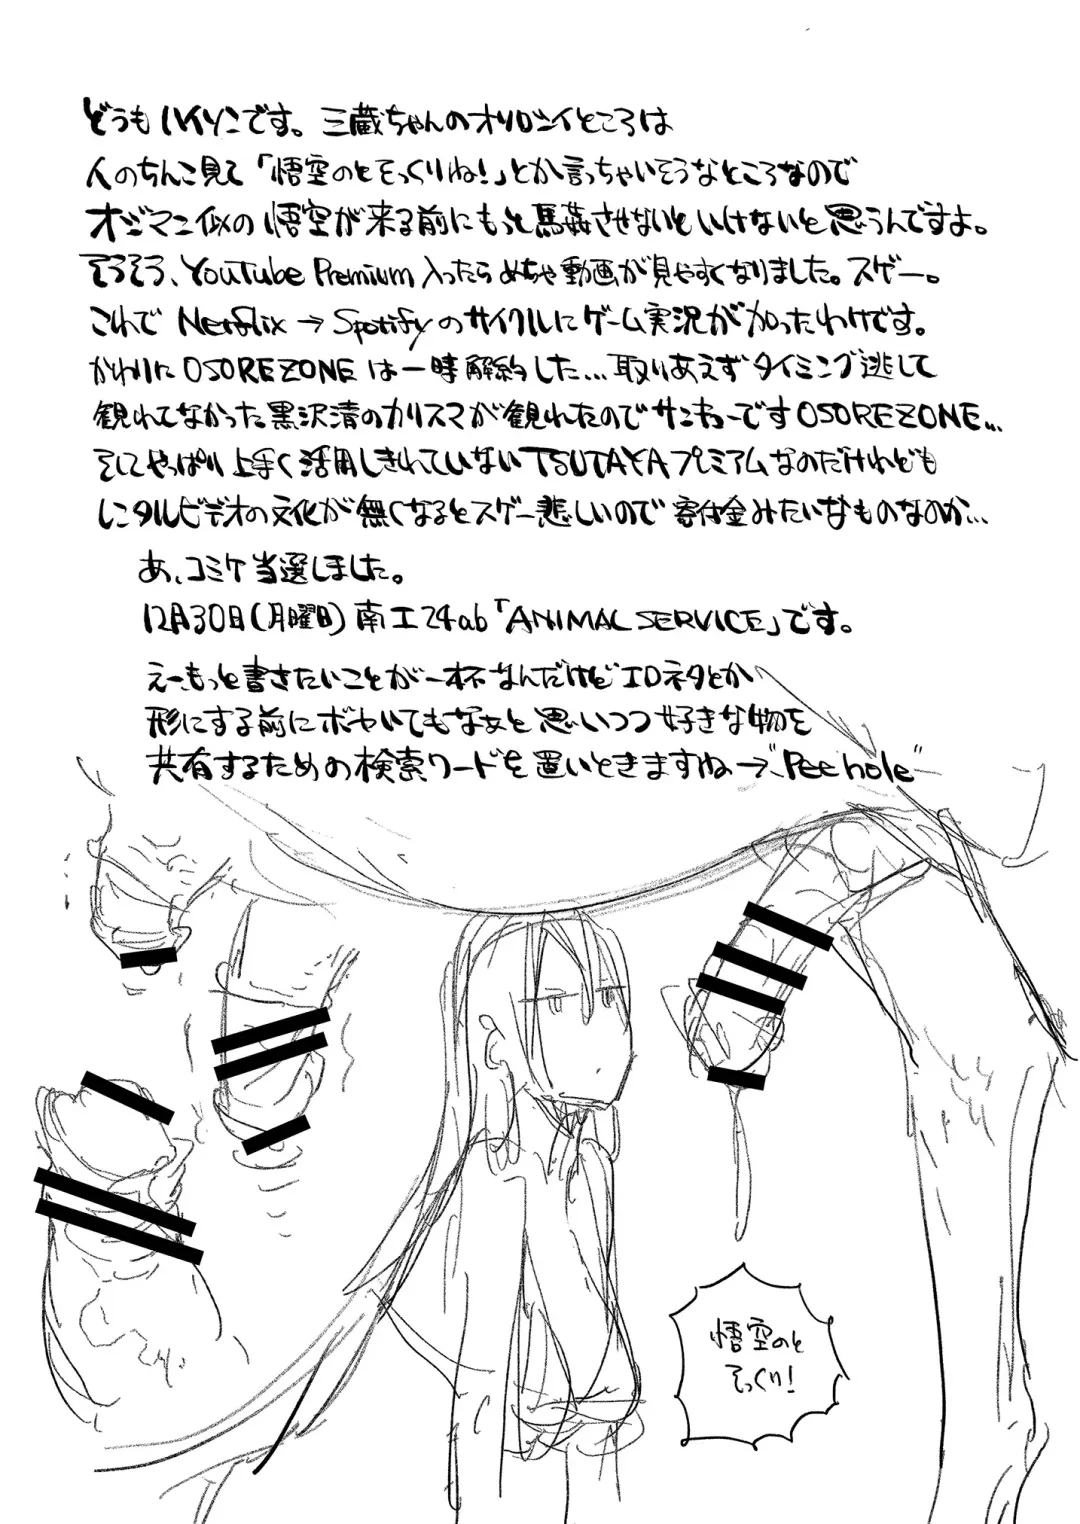 どうもハイソンです。三蔵ちゃんのオソロシイところは
人のちんこ見て「悟空のとそっくりね！」とか言っちゃいそうなところなので
オジマン似の悟空が来る前にもっと馬姦させないといけないと思うんですよ。
そろそろ、YouTube Premium入ったらめちゃ動画が見やすくなりました。スゲー。
これでNetflix→Spotifyのサイクルにゲーム実況が加ったわけです。
かわりにOSOREZONEは一時解約した…取りあえずタイミング逃して
観れてなかった黒沢清のカリスマが観れたのでサンキューですOSOREZONE…
そしてやっぱり上手く活用しきれていないTSUTAYAプレミアムなのだけれども
レンタルビデオの文化が無くなるとスゲー悲しいので寄付金みたいなものなのか…
あ、コミケ当選しました。
12月30日(月曜日)南エ24ab「ANIMAL SERVICE」です。
えー、もっと書きたいことが一杯なんだけどエロネタとか
形にする前にボヤいてもなぁと思いつつ好きな物を
共有するための検索ワードを置いときますね→"Pee hole"
悟空のと
そっくり！